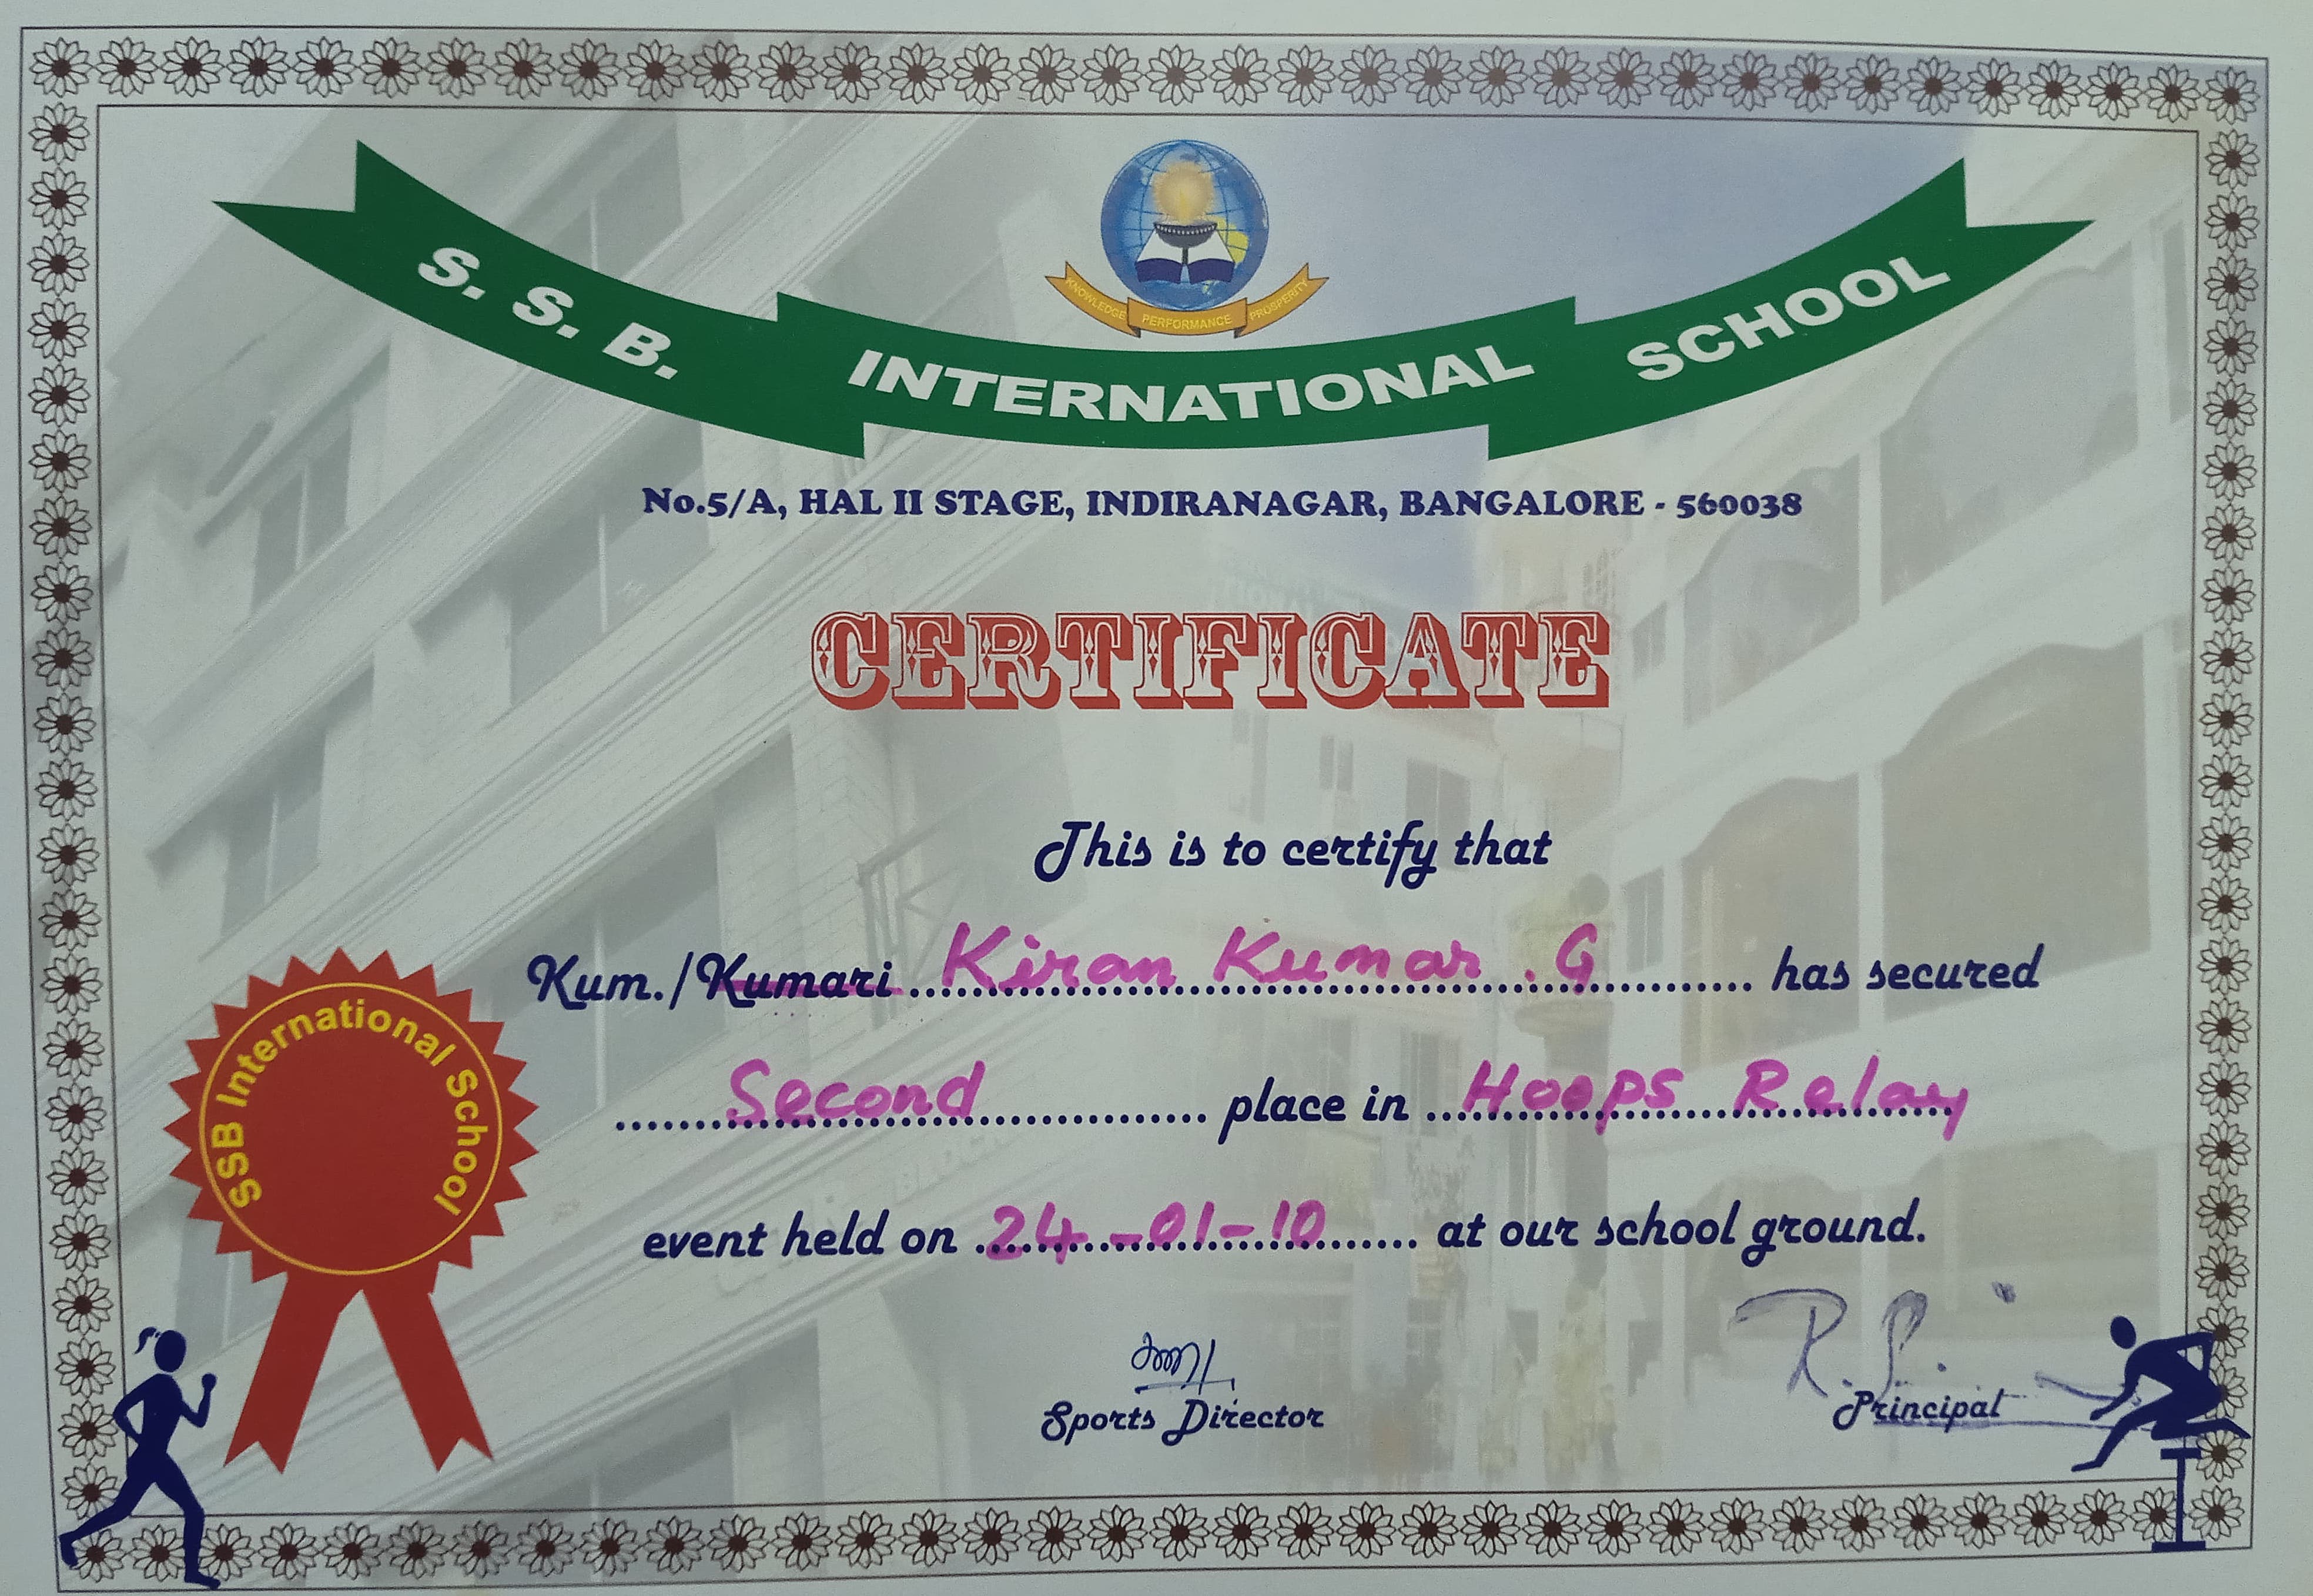 KNOWLEDGE PERFORMANCE PROSPERITY
S. S. B. INTERNATIONAL SCHOOL
No.5/A, HAL II STAGE, INDIRANAGAR, BANGALORE - 560038
CERTIFICATE
This is to certify that
Kum./Kumari Kiran Kumar .G has secured
Second place in Hoops Relay
event held on 24-01-10 at our school ground.
SSB International School
Sports Director
Principal